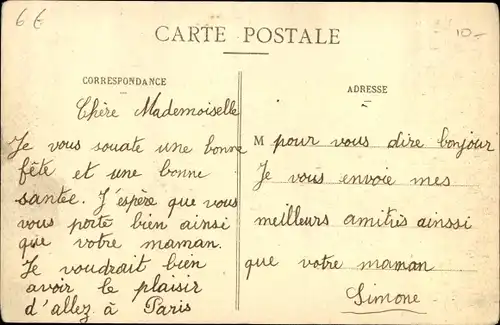 6 €
10-
CARTE POSTALE
CORRESPONDANCE
Chère Mademoiselle
Je vous souate une bonne
fête et une bonne
santée. J'espère que vous
vous porte bien ainsi
que votre maman.
Je voudrait bien
avoir le plaisir
d'allez à Paris
ADRESSE
M pour vous dire bonjour
Je vous envoie mes
meilleurs amitiés ainssi
que votre maman
Simone